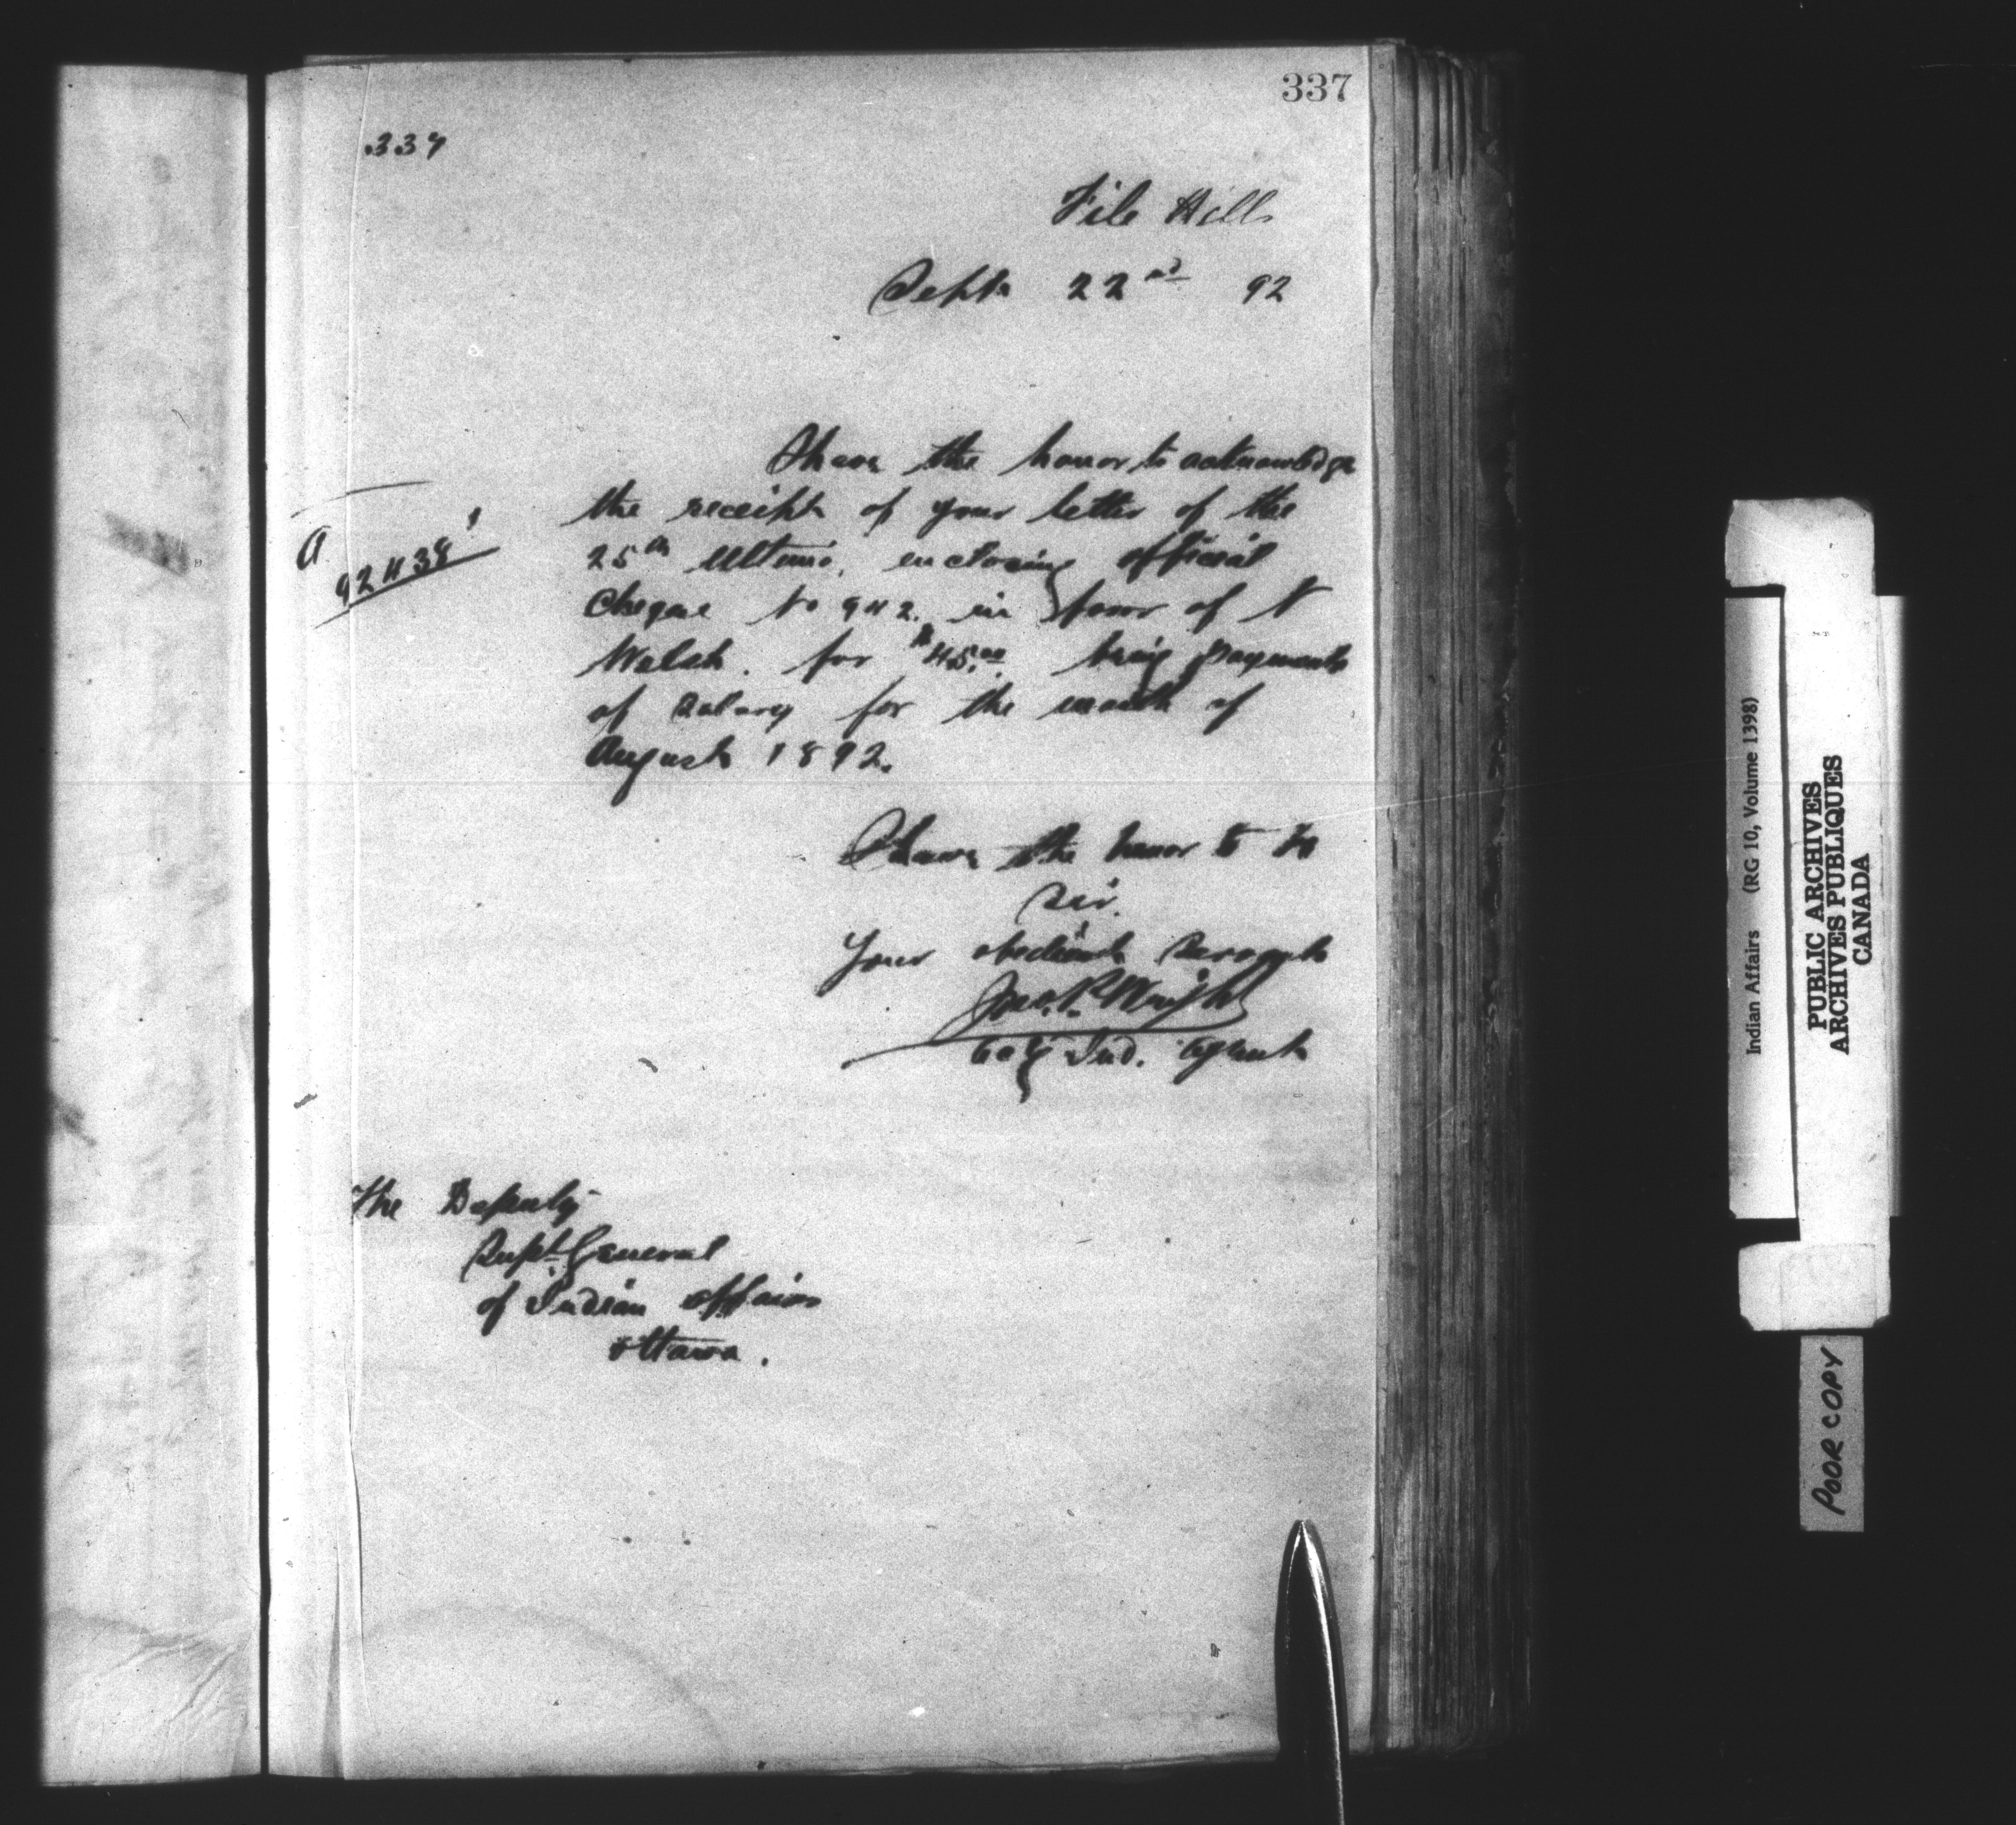 337
337
File Hills
Sept. 22nd 92
I have the honor to acknowledge
the receipt of your letter of the
A
92438
25th Ultimo, enclosing official
Cheque No 942. in favor of N
Welsh. for $45.00 being payment
of salary for the month of
August 1892.
I have the honor to be
Sir.
Your obedient Servant
Jno. P. Wright
Ind. Agent
The Deputy
Supt General
of Indian Affairs
Ottawa.
Indian Affairs (RG 10, Volume 1398)
PUBLIC ARCHIVES
ARCHIVES PUBLIQUES
CANADA
POOR COPY